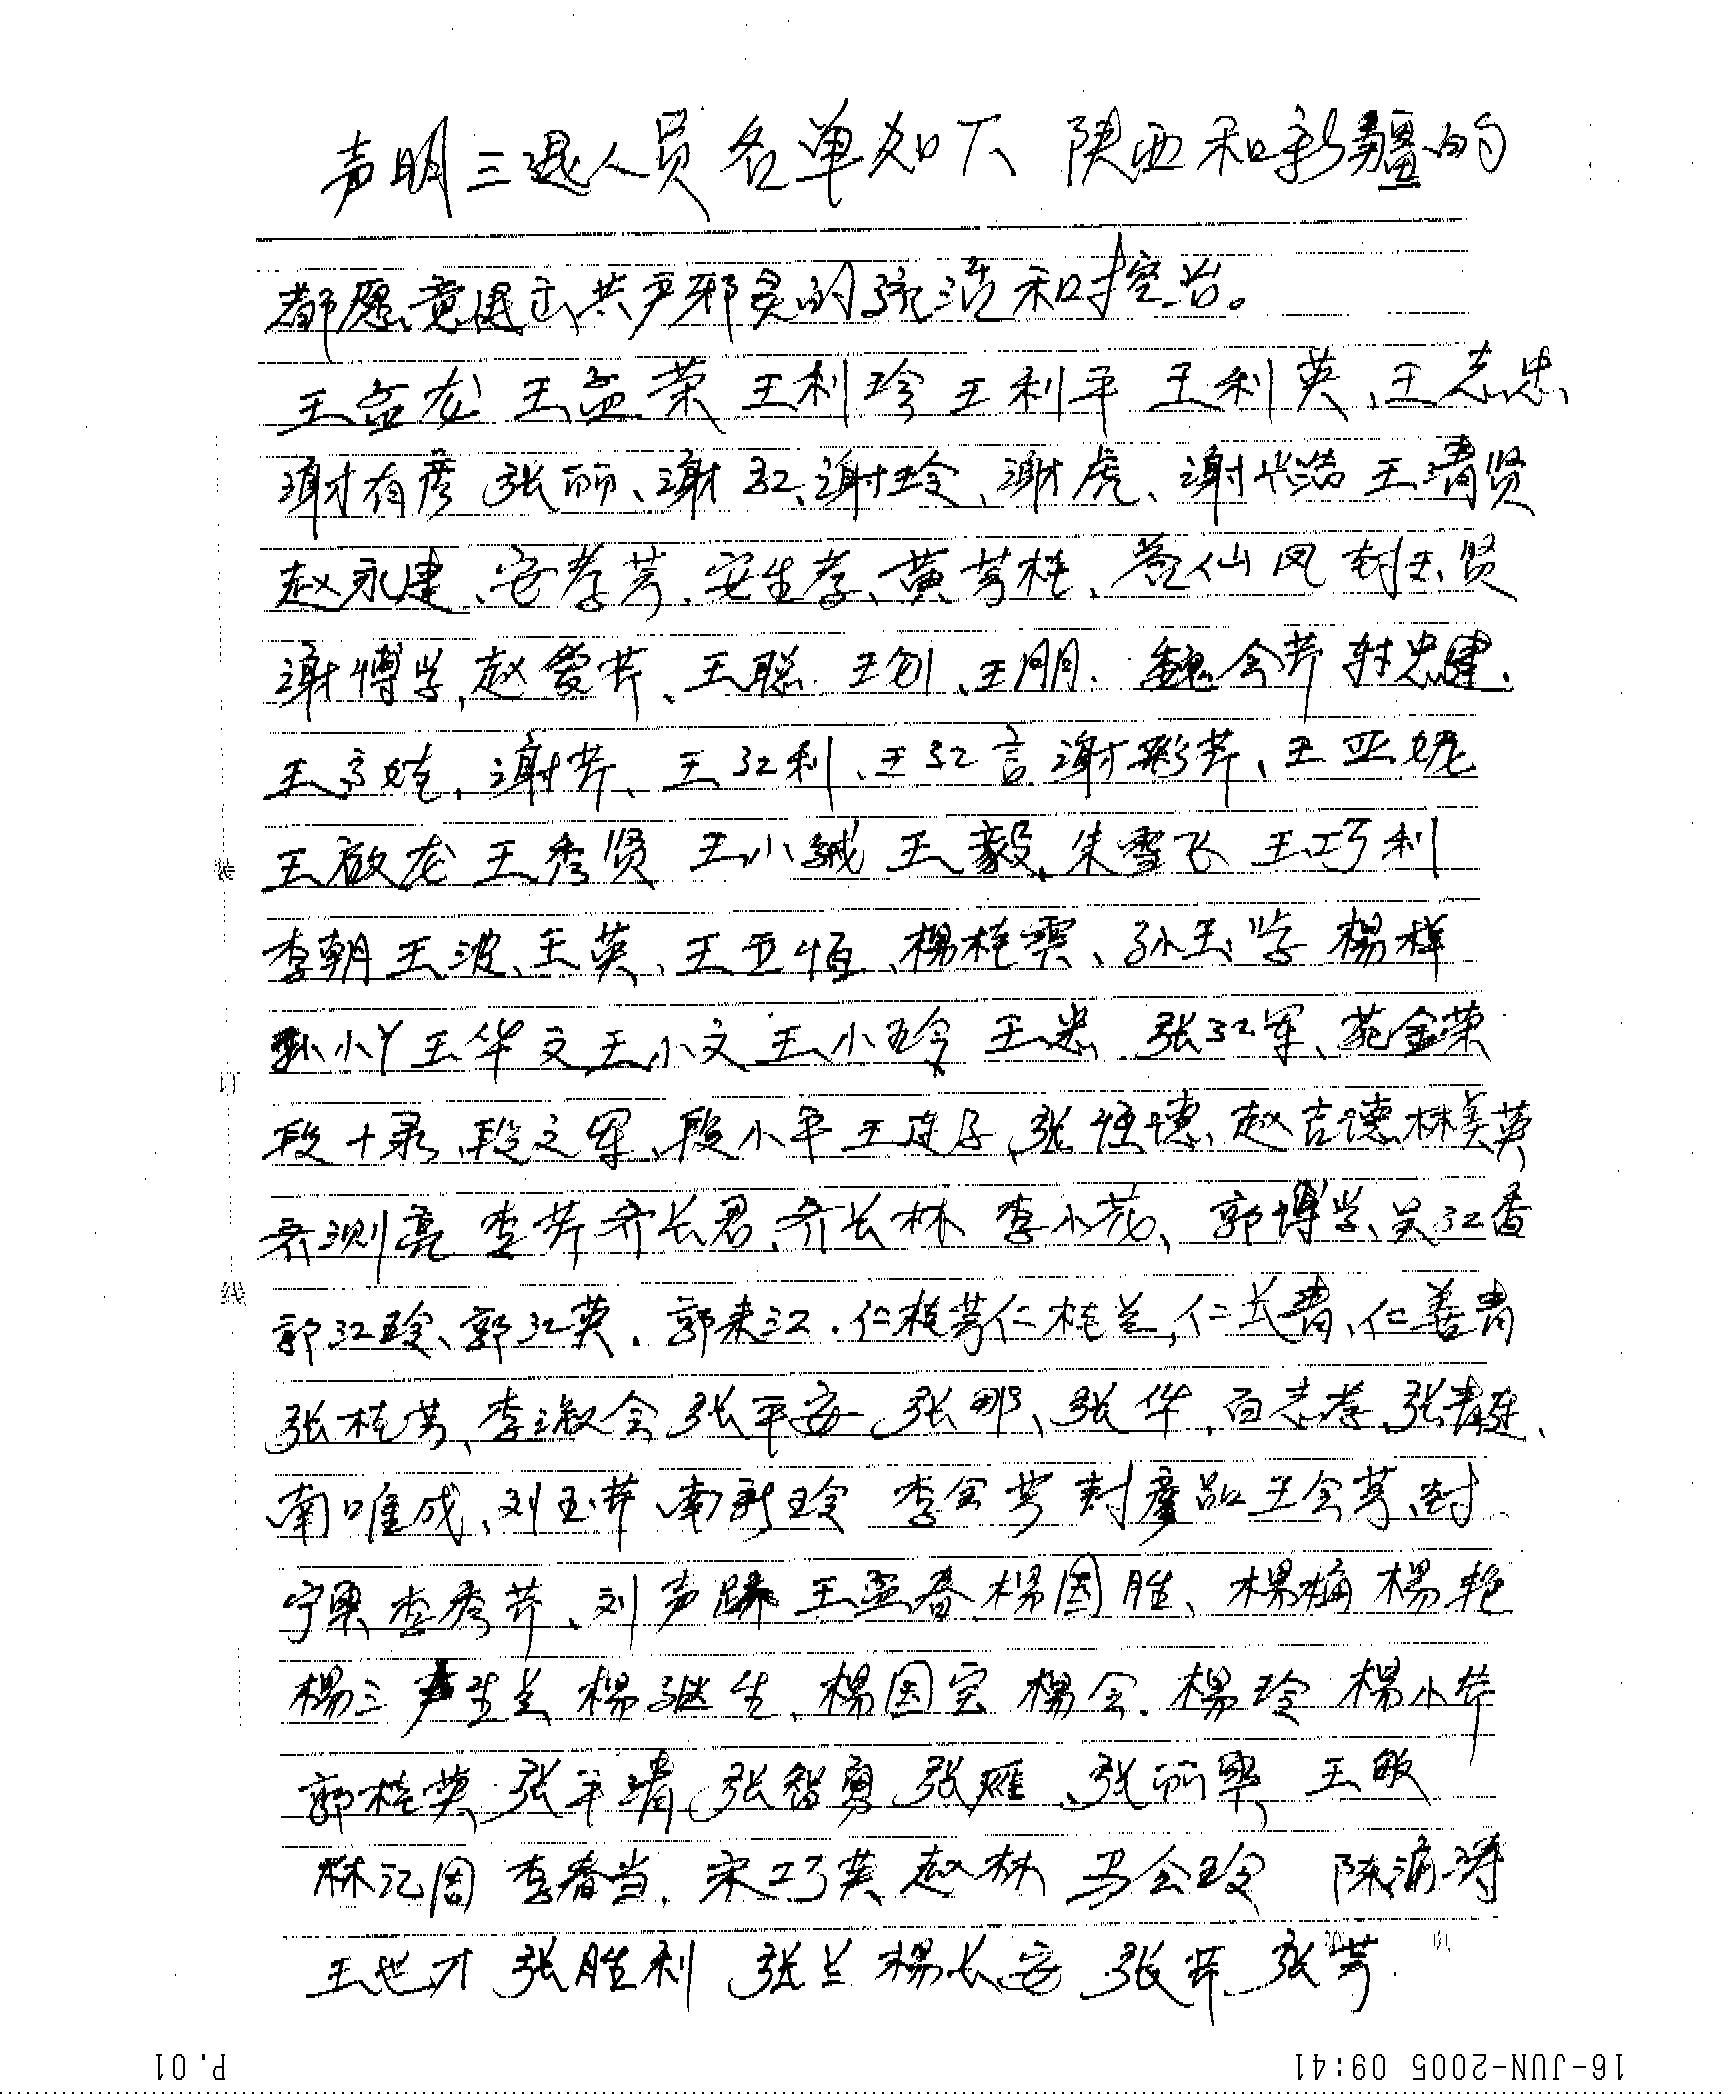 声明三退人员名单如下 陕西和新疆的
都愿意退出共产邪灵的 和控治。
王孟龙 王孟荣 王利珍 王利平 王利英、王志忠、
谢才有彦 张丽、谢红、谢玲、谢虎、谢 王清贤
赵永建、安孝芳、安生孝、黄芳桂、 仙凤 封玉贤
谢博学、赵爱芹、王聪、王刨、王朋. 魏会芹 封忠建.
王 娃、谢芹、王红利、王红言 谢彩芹、王亚妮
王啟龙 王秀贤 王小斌 王毅、朱雪飞 王巧利
李朝 王波、王英、王亚恒、杨桂霞、孙玉学 杨样
孙小丫 王华文 王小文 王小玲 王忠 张红军、苑金荣
段十录、段文军、段小平 王 子、张恒德、赵吉德 林美英
齐测亮 李芹 齐长君、齐长林 李小茂、郭博学、吴江香
郭江玲、郭江英. 郭来江. 仁桂芳 仁桂兰, 仁长青、仁善青
张桂芳、李淑会 张平安 张那、张华. 白志孝、张青莲、
南唯成、刘玉芹 南新玲 李会芳 封 品 王会芳、封
宁 李秀芹、刘声 王亚春、杨国胜、杨梅 杨艳
杨三 声生兰 杨继生、杨国宝 杨会. 杨玲 杨小芹
郭桂英 张平清 张智勇 张雁、张丽 王敏
林记周 李春当. 宋巧英 赵林 马会玲 陈涛
王世才 张胜利 张兰 杨长安 张芹 张芳.
装
订
线
16-JUN-2005 09:41
P.01